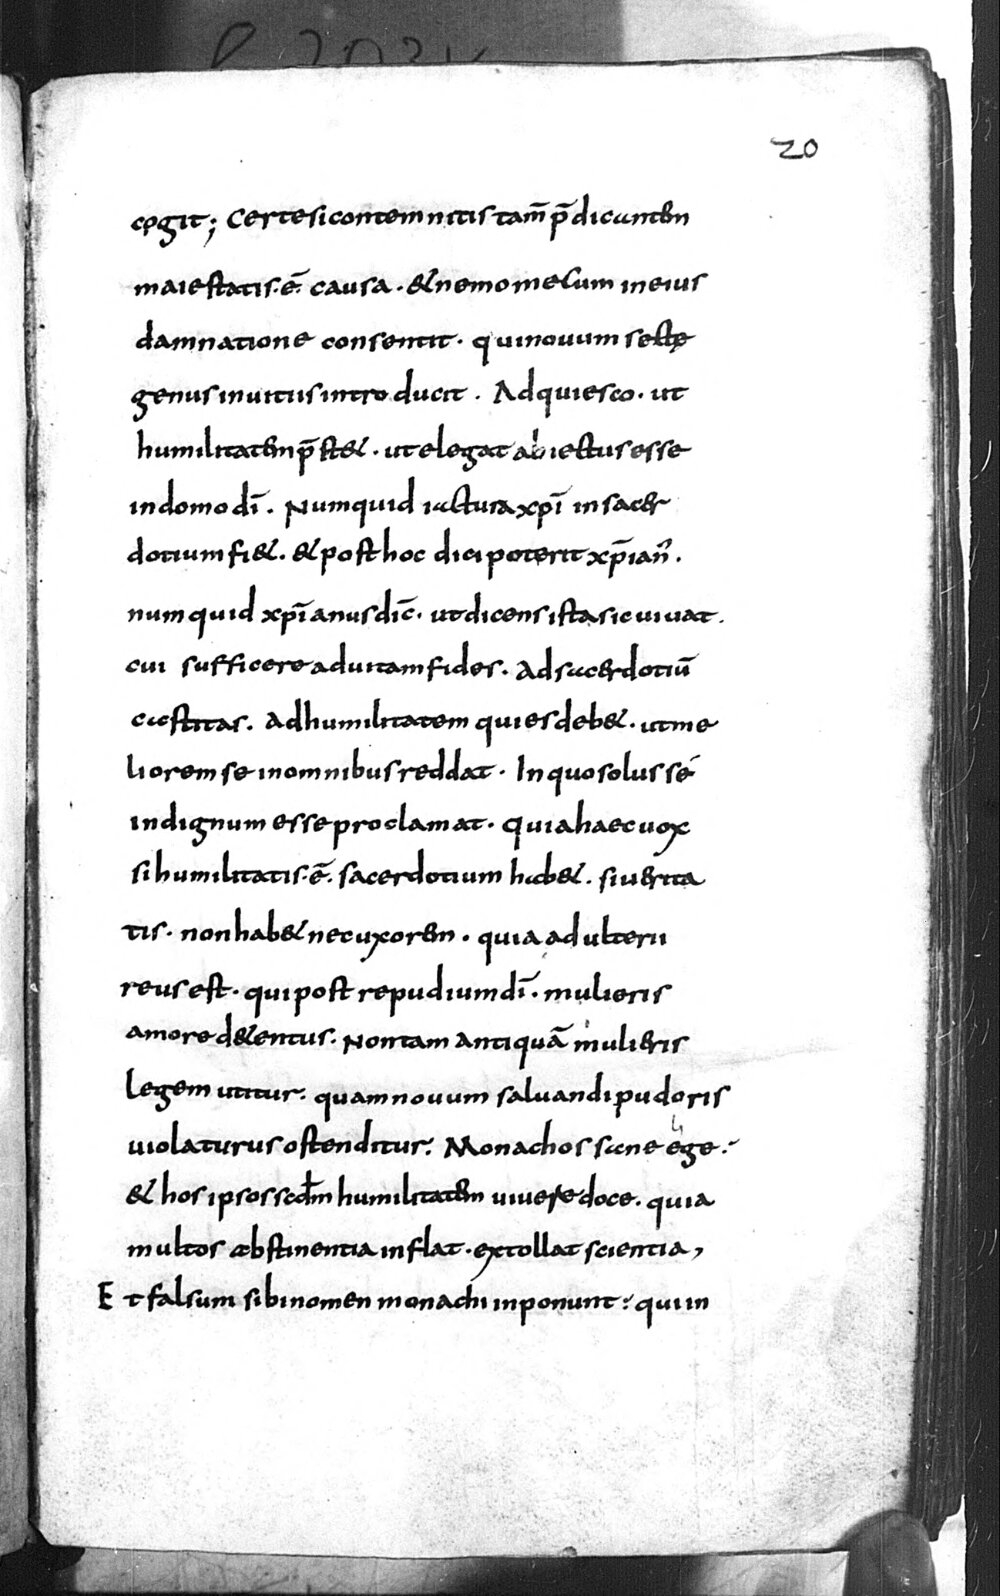 20
cogit; Certesicontemnitis tam̄ p̄dicantem
maiestatis·ē· causa · &nemo mecum ineius
damnatione consentit· quinouum sectę
genus inuitiis intro ducit . Adquiesco · ut
humilitatem p̄st& · ut elegat abiectus esse
indomo dī . Numquid iactura xp̄i insacer
dotium fi&. & post hoc dici poterit xp̄ian̄.
num quid xp̄ianus dic̄· ut dicens ista sic uiuat.
cui sufficere aduitam fides. Adsacerdotiū
castitas. Adhumilitatem quies deb&· utme
liorem se inomnibus reddat· Inquo solus se
indignum esse proclamat· quia haec uox
si humilitatis·ē· sacerdotium hab&. si uerita
tis· non hab& nec uxorem· quia adulterii
reus est· qui post repudium dī· mulieris
amore d&entus· Nontam antiquā mulieris
legem utitur: quam nouum saluandi pudoris
uiolaturus ostenditur: Monachos sane ege:
& hos ipsos scdm̄ humilitatem uiuere doce. quia
multos abstinentia inflat· extollat scientia,
Et falsum sibi nomen monachi inponunt: qui in